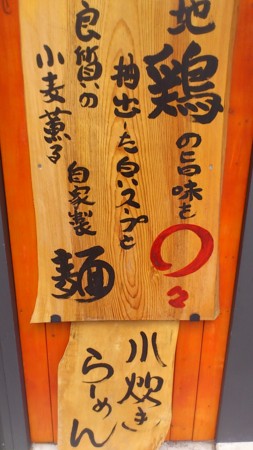 地鶏の旨味を
の々
抽出した白いスープと
良質の
小麦薫る
自家製麺
水炊き
らーめん